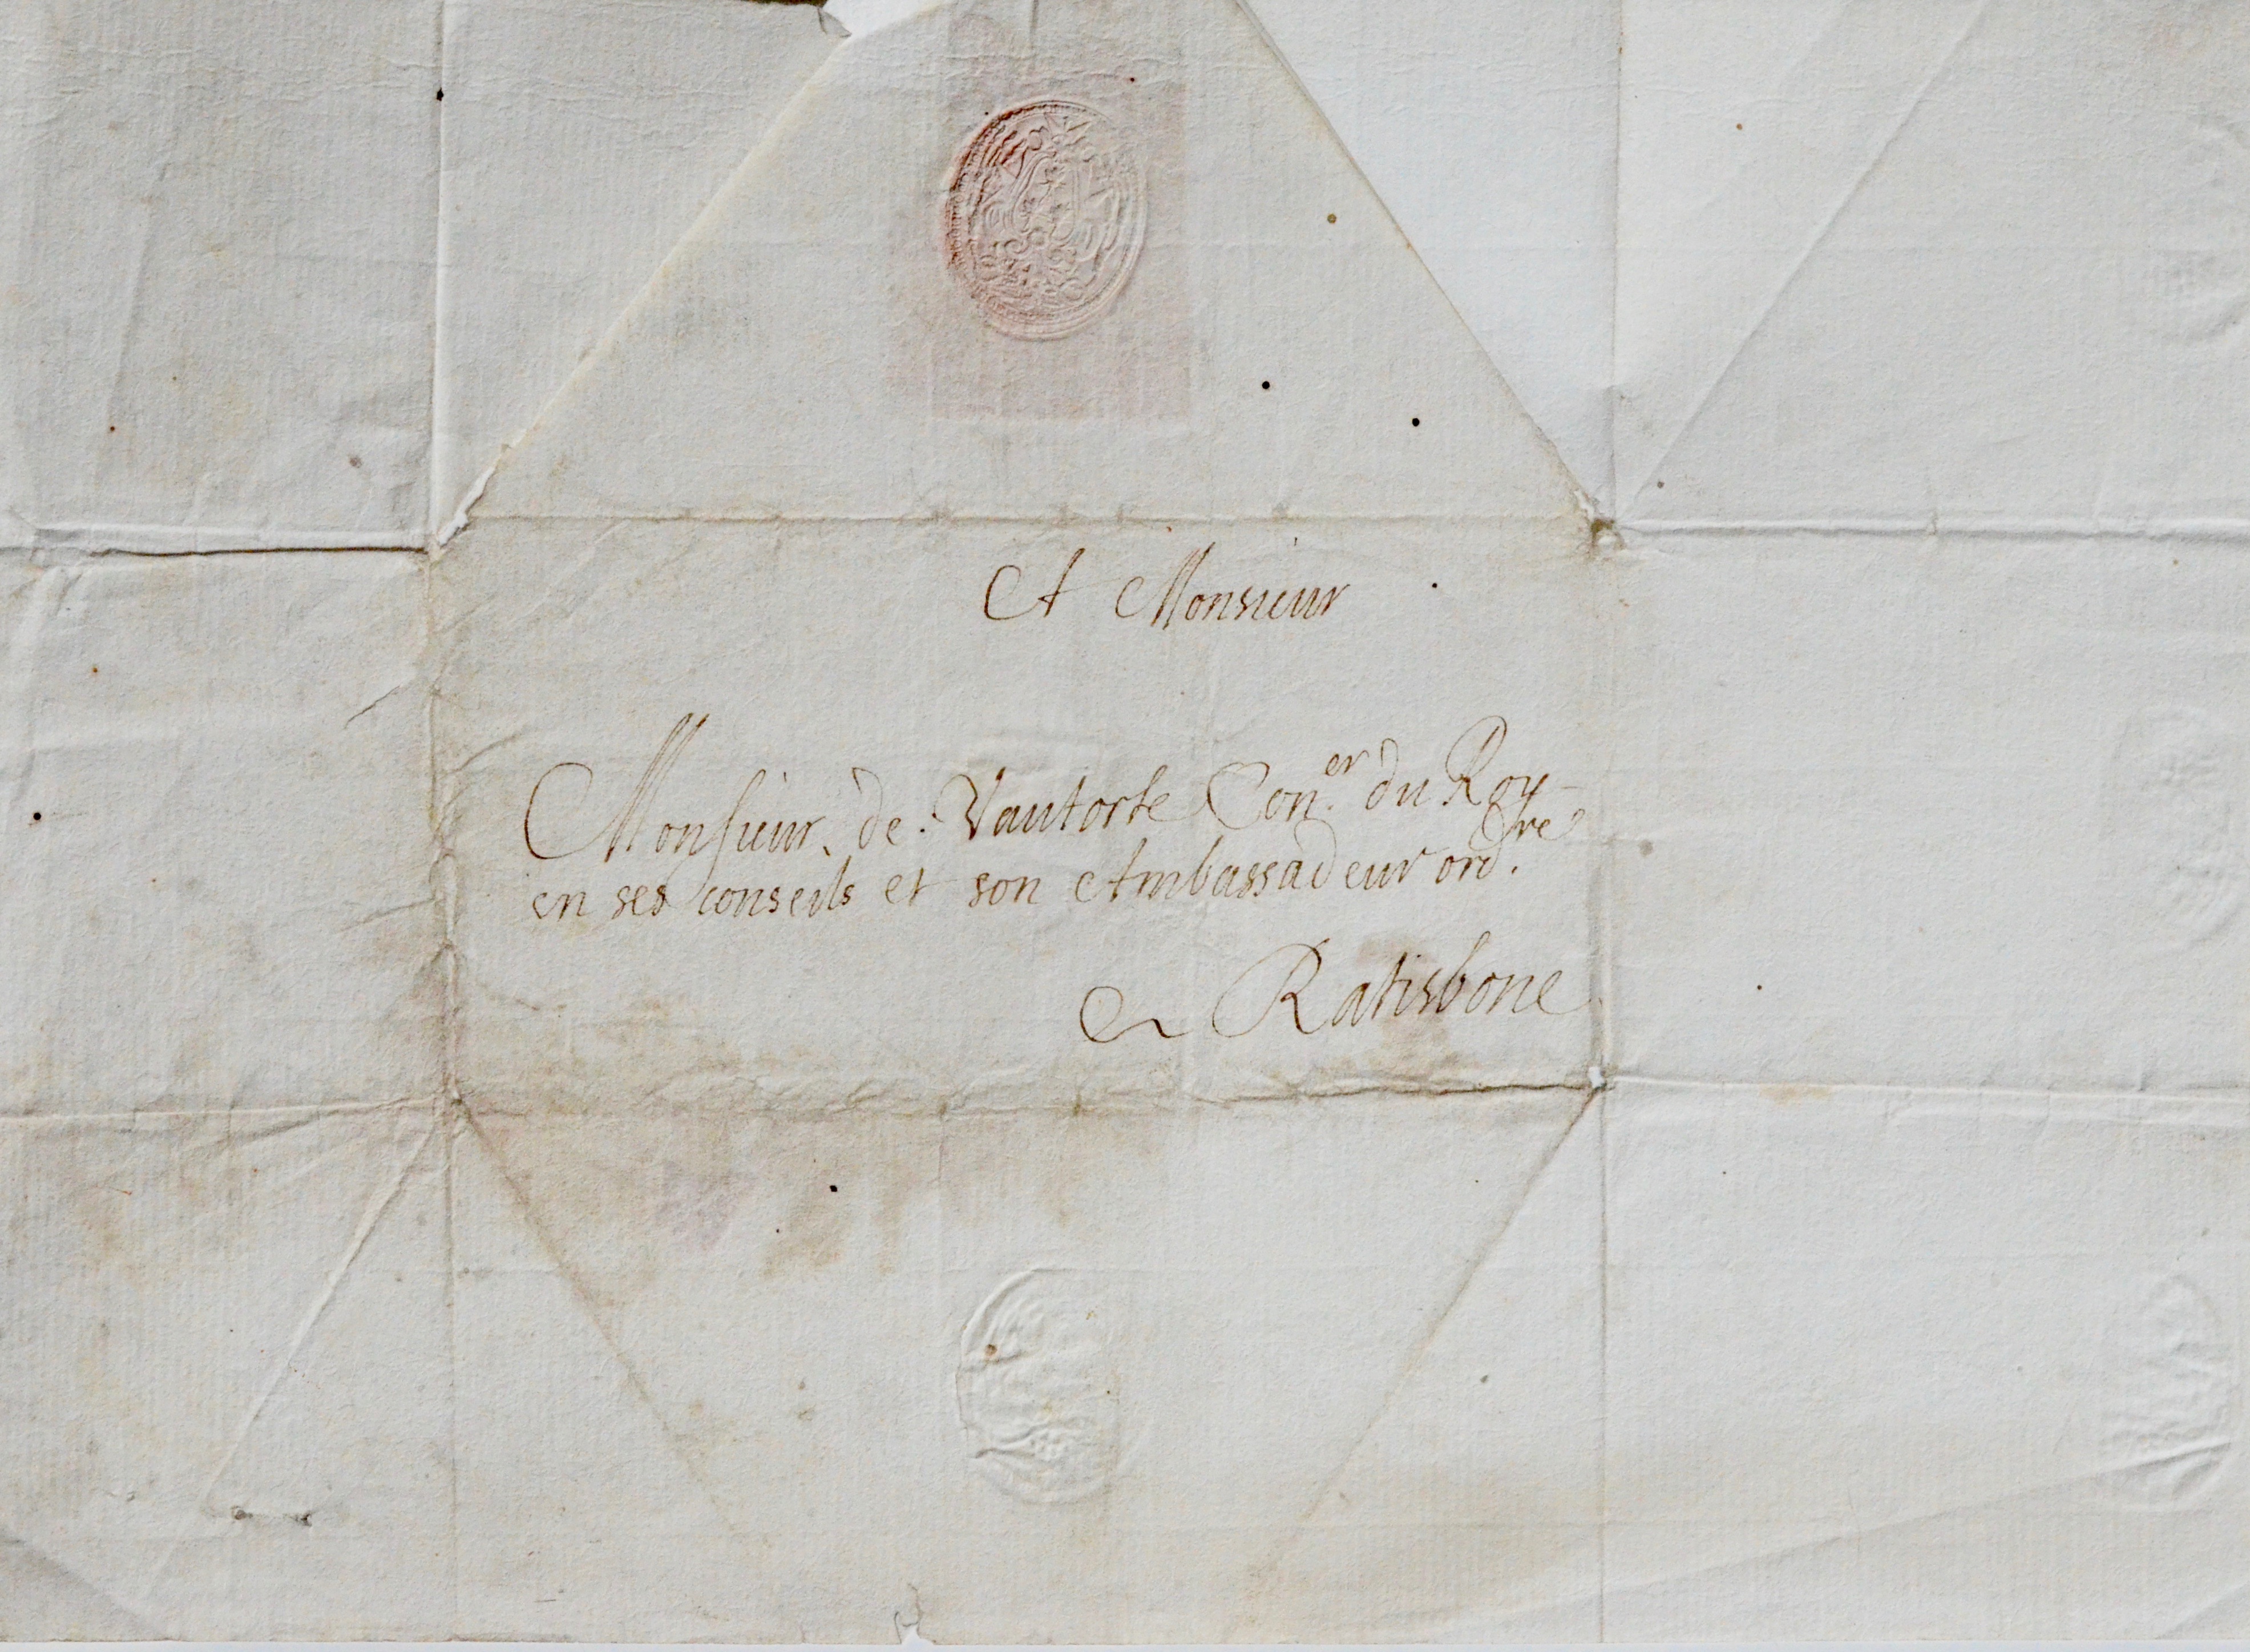 A Monsieur
Monsieur de Vautorte Con.er du Roy
en ses conseils et son Ambassadeur ord.re
A Ratisbone